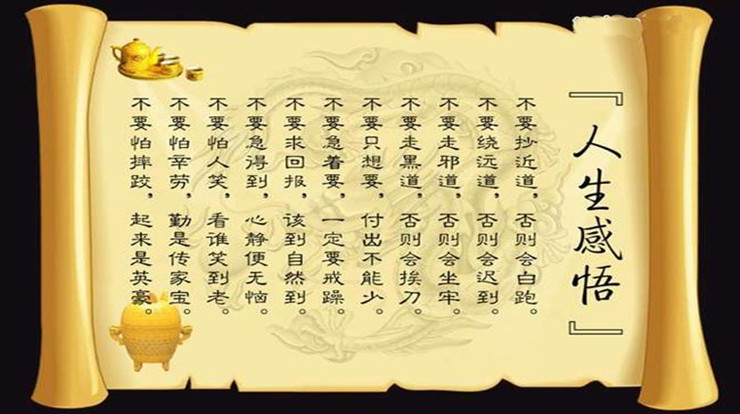 『人生感悟』
不要抄近道，否则会白跑。
不要绕远道，否则会迟到。
不要走邪道，否则会坐牢。
不要走黑道，否则会挨刀。
不要只想要，付出不能少。
不要急着要，一定要戒躁。
不要求回报，该到自然到。
不要急得到，心静便无恼。
不要怕人笑，看谁笑到老。
不要怕辛劳，勤是传家宝。
不要怕摔跤，起来是英豪。